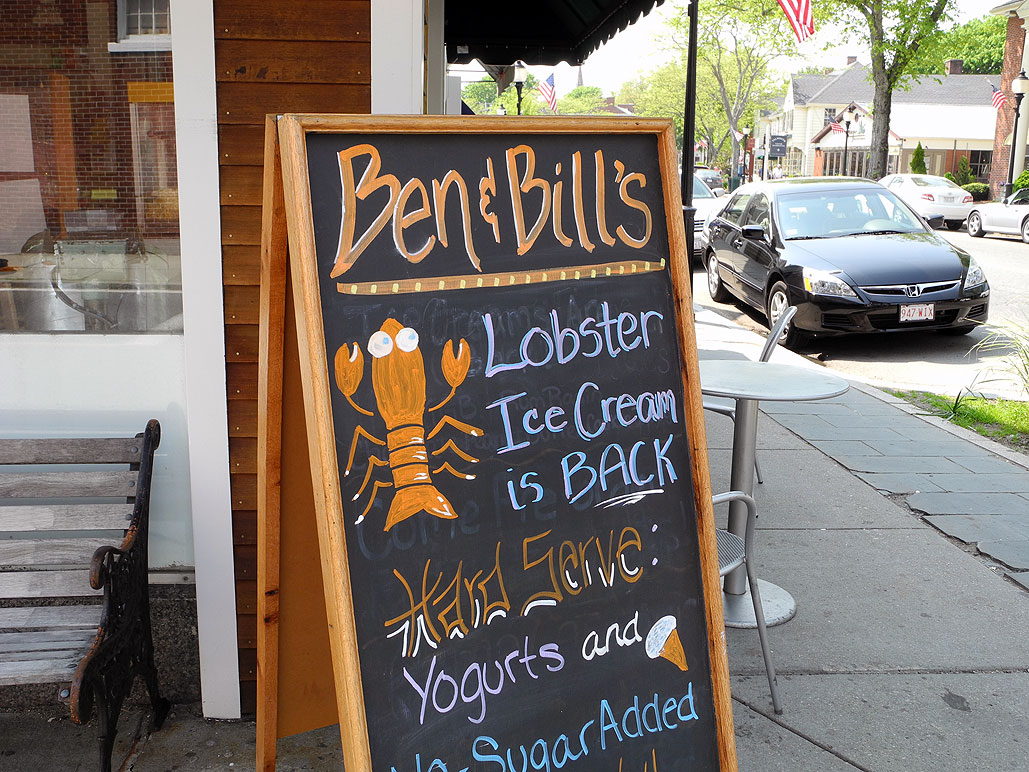 Ben & Bill's
Lobster
Ice Cream
is BACK
Hard Serve:
Yogurts and
No-Sugar Added
947 WIX